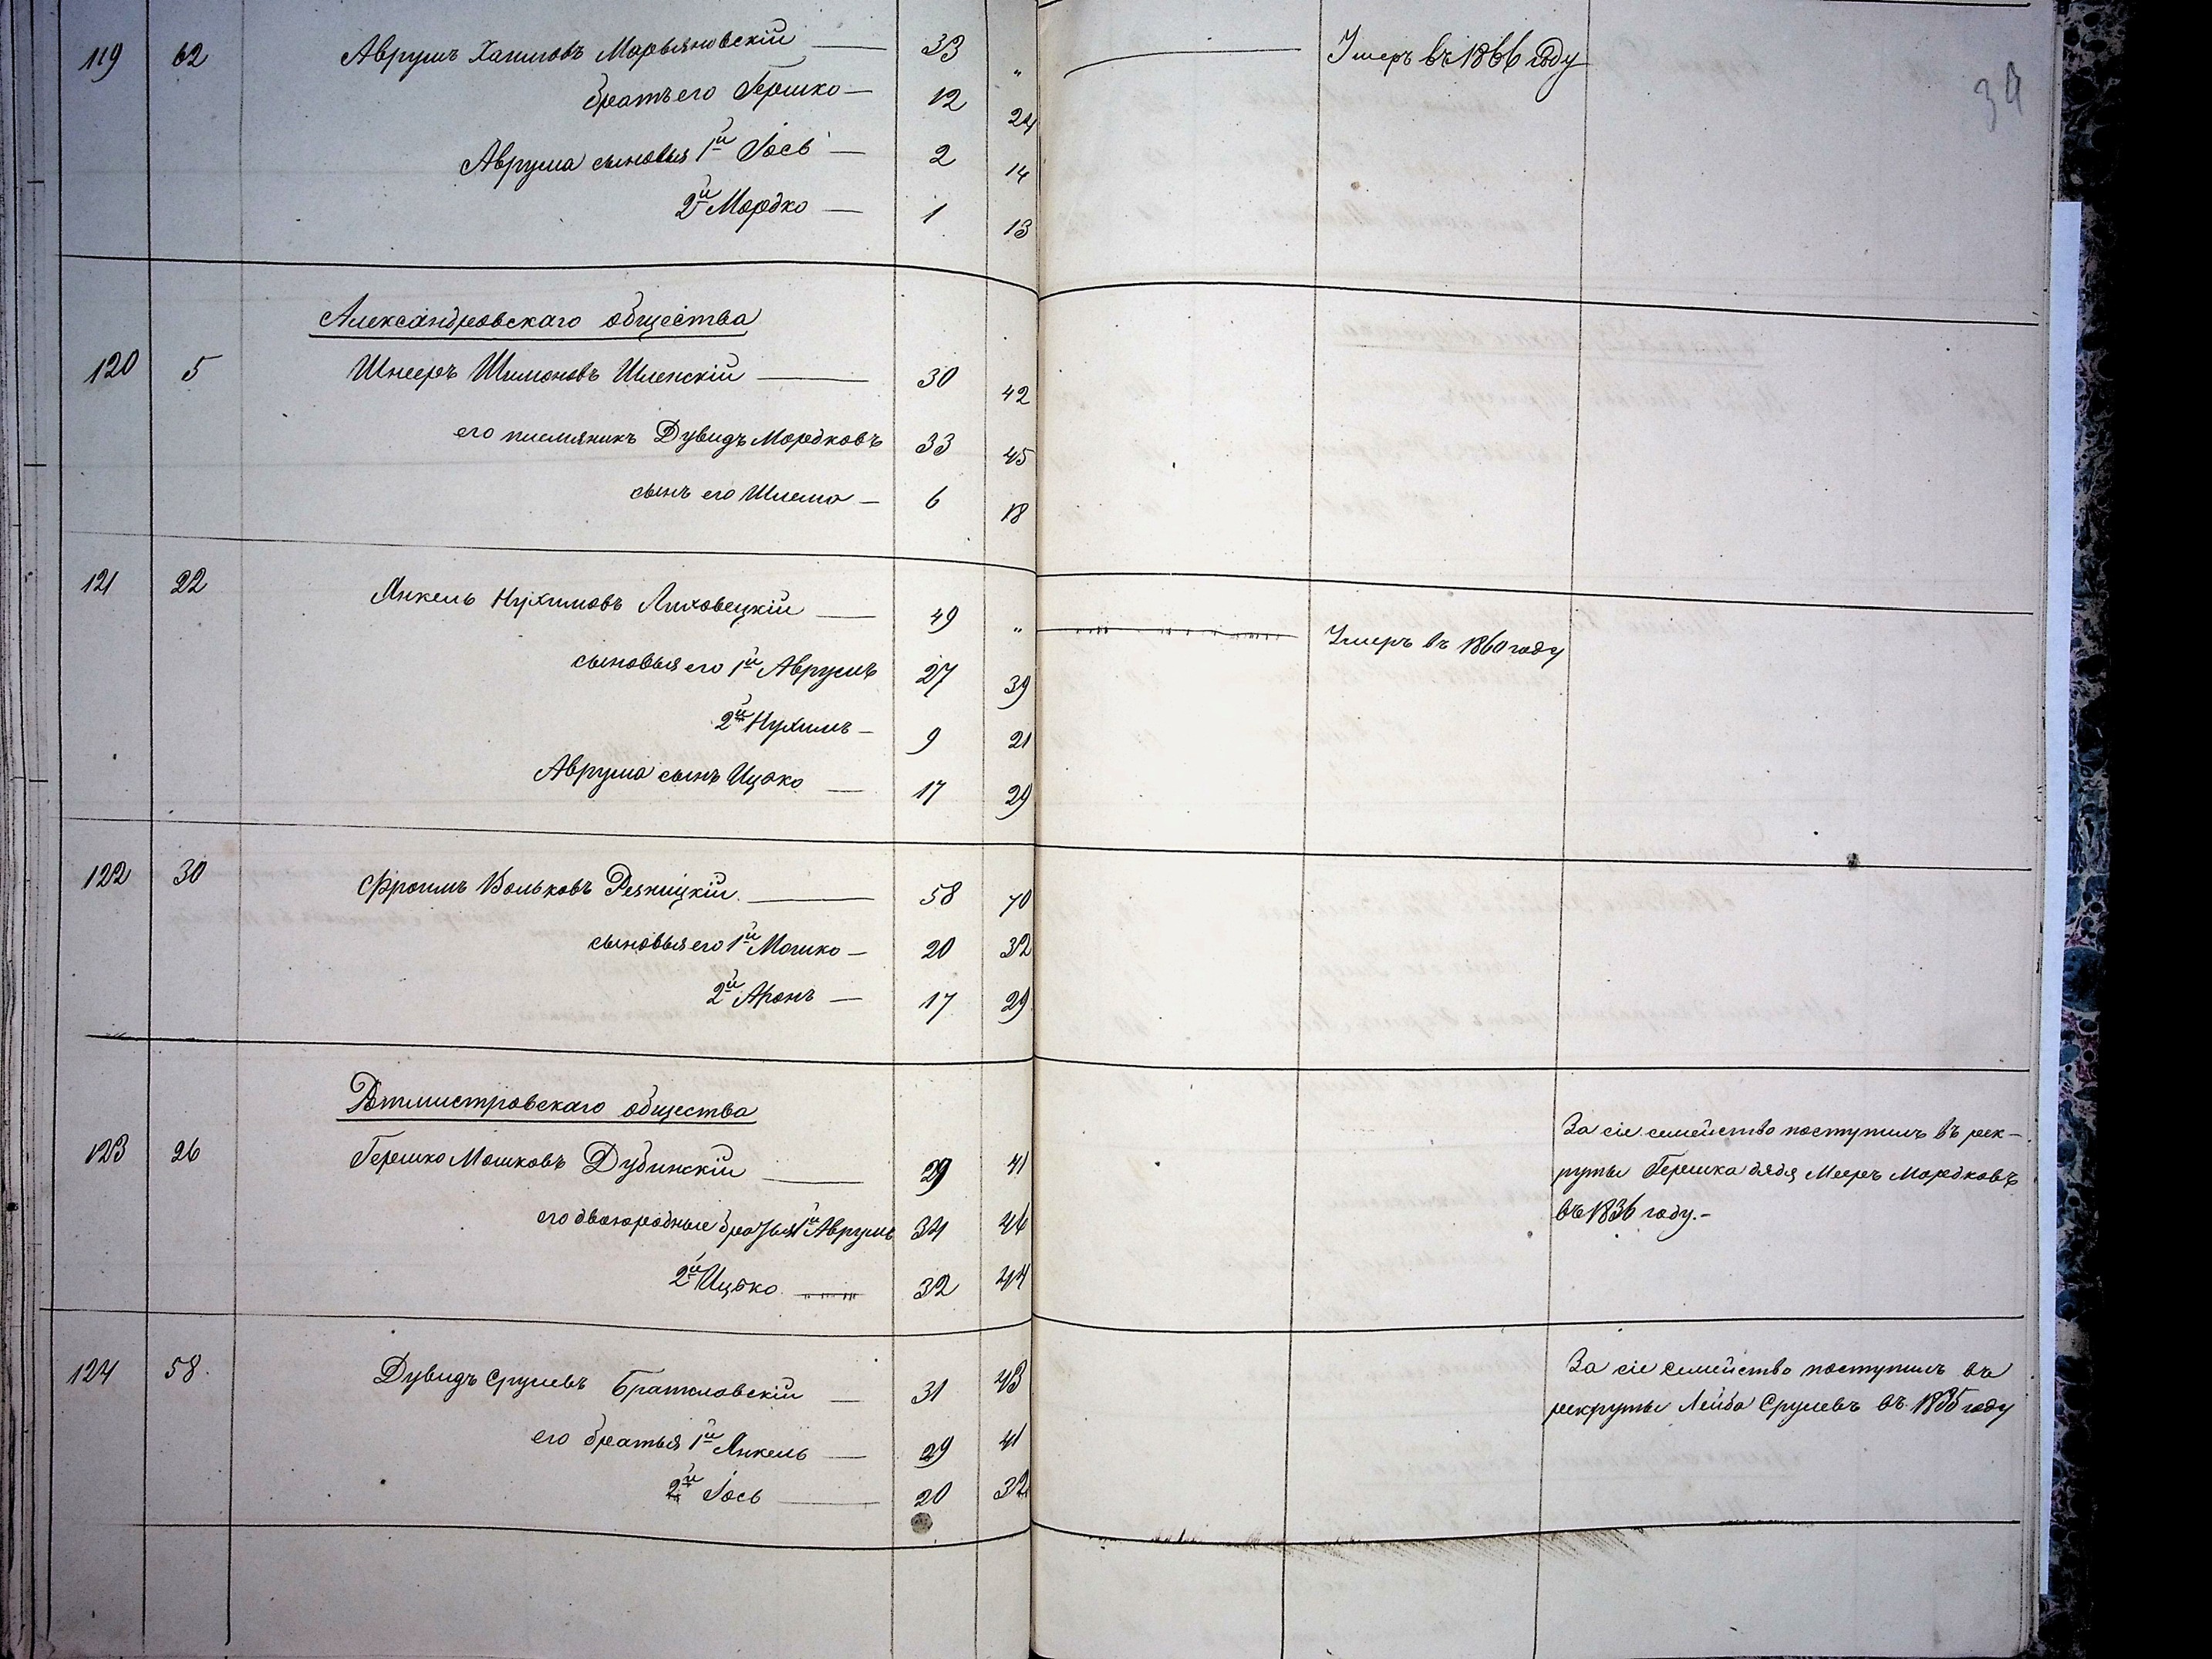 119 62 Аврумъ Хаимовъ Марьяновскій — 33 „ — Умеръ въ 1866 году
39
братъ его Гершко — 12 24
Аврума сыновья 1й Іось — 2 14
2й Мордко — 1 13
Александровскаго общества
120 5 Шнееръ Шимоновъ Шленскій — 30 42
его племяникъ Дувидъ Мордковъ 33 45
сынъ его Шлемо — 6 18
121 22 Янкель Нухимовъ Ляховецкій — 49 „ — Умеръ въ 1860 году
сыновья его 1й Аврумъ 27 39
2й Нухимъ — 9 21
Аврума сынъ Ицко — 17 29
122 30 Фроимъ Вольковъ Резницкій — 58 70
сыновья его 1й Мошко — 20 32
2й Аронъ — 17 29
Ротмистровскаго общества
123 26 Гершко Мошковъ Дубинскій — 29 41
его двоюродные братья 1й Аврумъ 34 46
2й Ицко — 32 44
За сіе семейство поступилъ въ рек-
руты Гершка дядя Мееръ Мордковъ
въ 1836 году.-
124 58. Дувидъ Срулевъ Брацловскій — 31 43
его братья 1й Янкель — 29 41
2й Іось — 20 32
За сіе семейство поступилъ въ
рекруты Лейба Срулевъ въ 1835 году